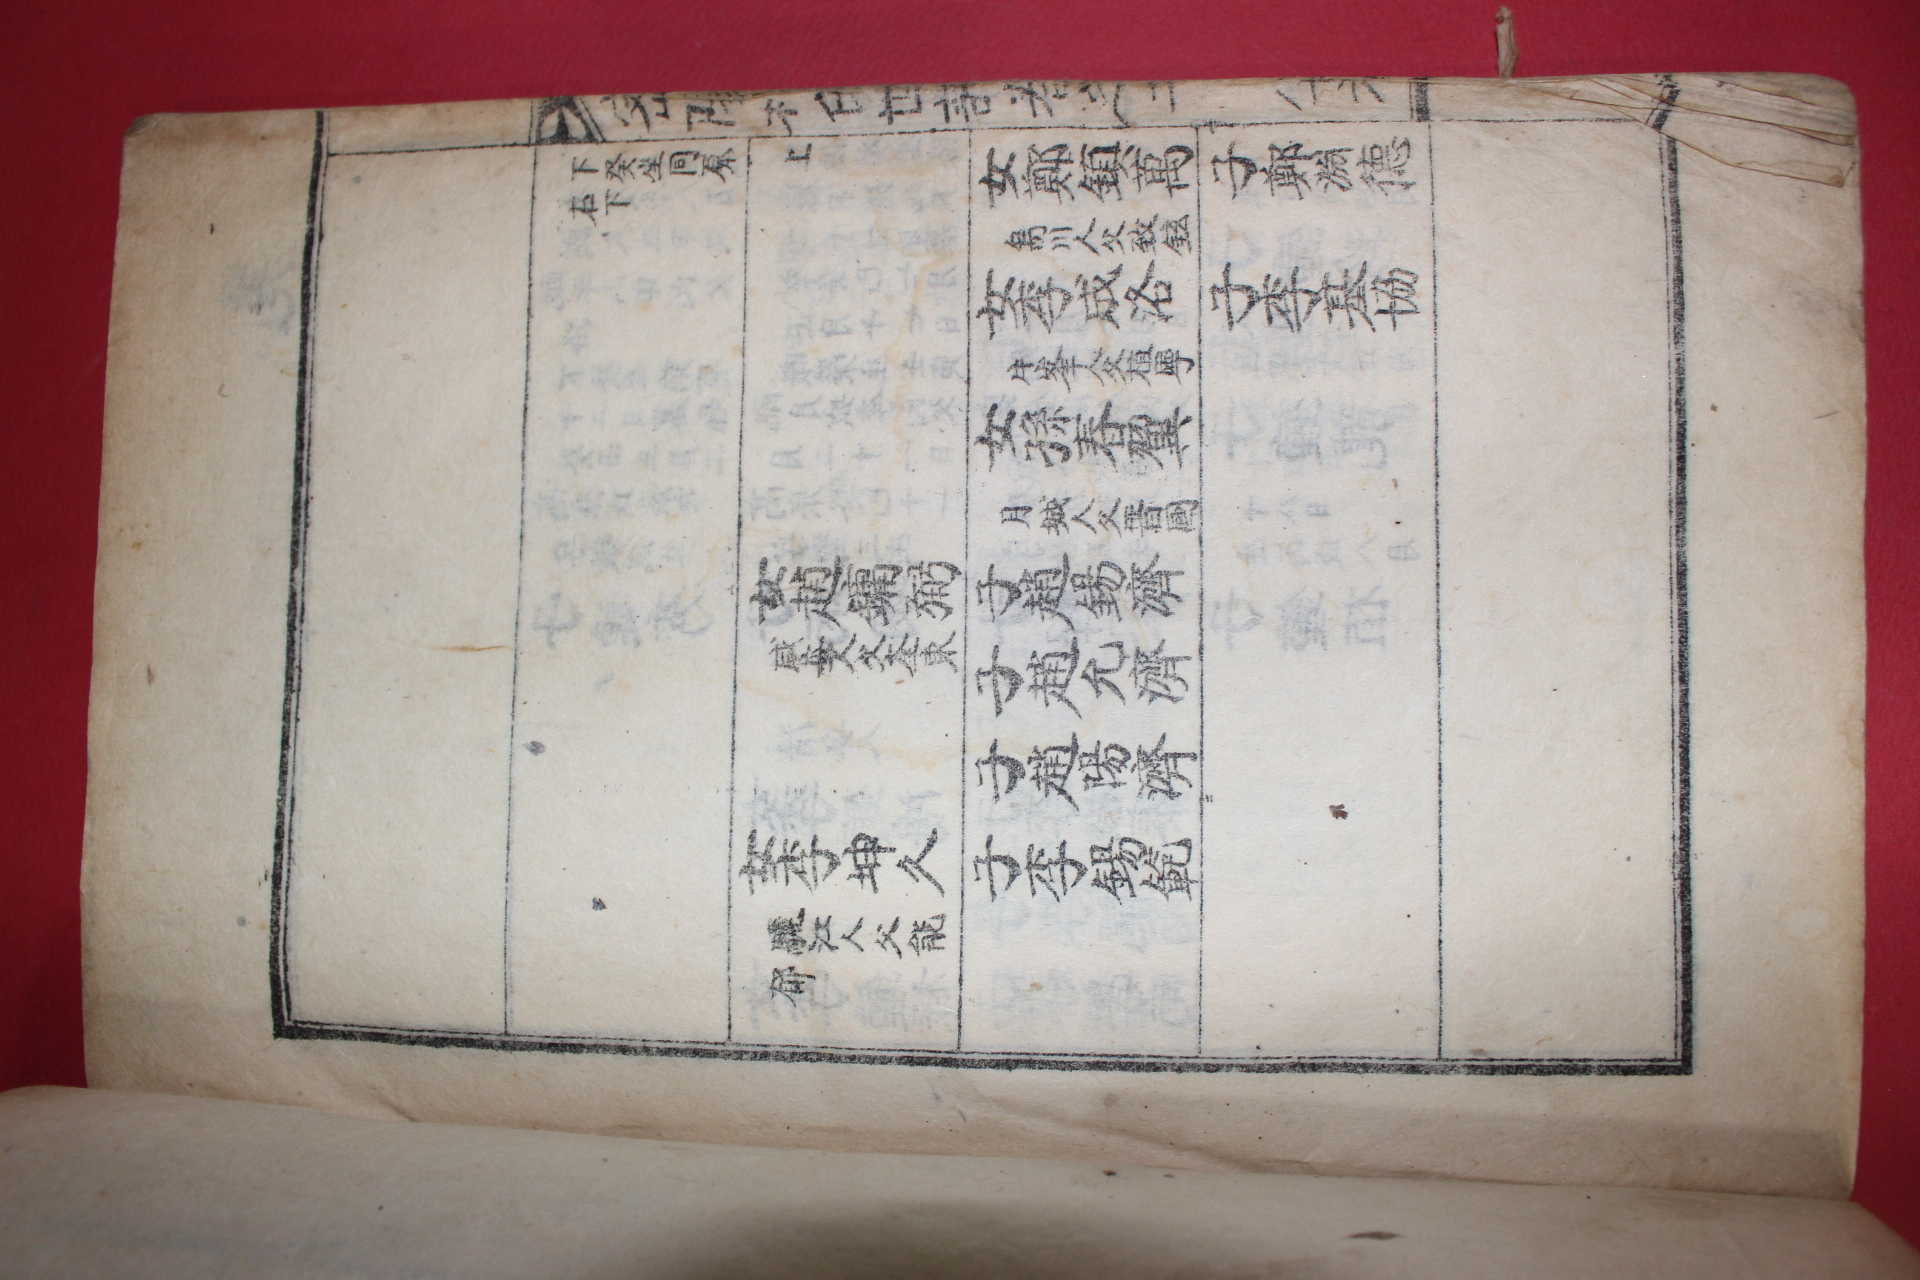 密陽朴氏世譜卷之二
八十六
下癸坐同原
右下
上
女趙鏞弼
咸安人父奎東
女李坤久
驪江人父能
郁
女鄭鎮萬
烏川人父致鉉
女李成洛
牛峯人父植寧
女孫春翼
月城人父晋國
子趙錫濟
子趙允濟
子趙陽濟
子李錫範
子鄭淵德
子李基協